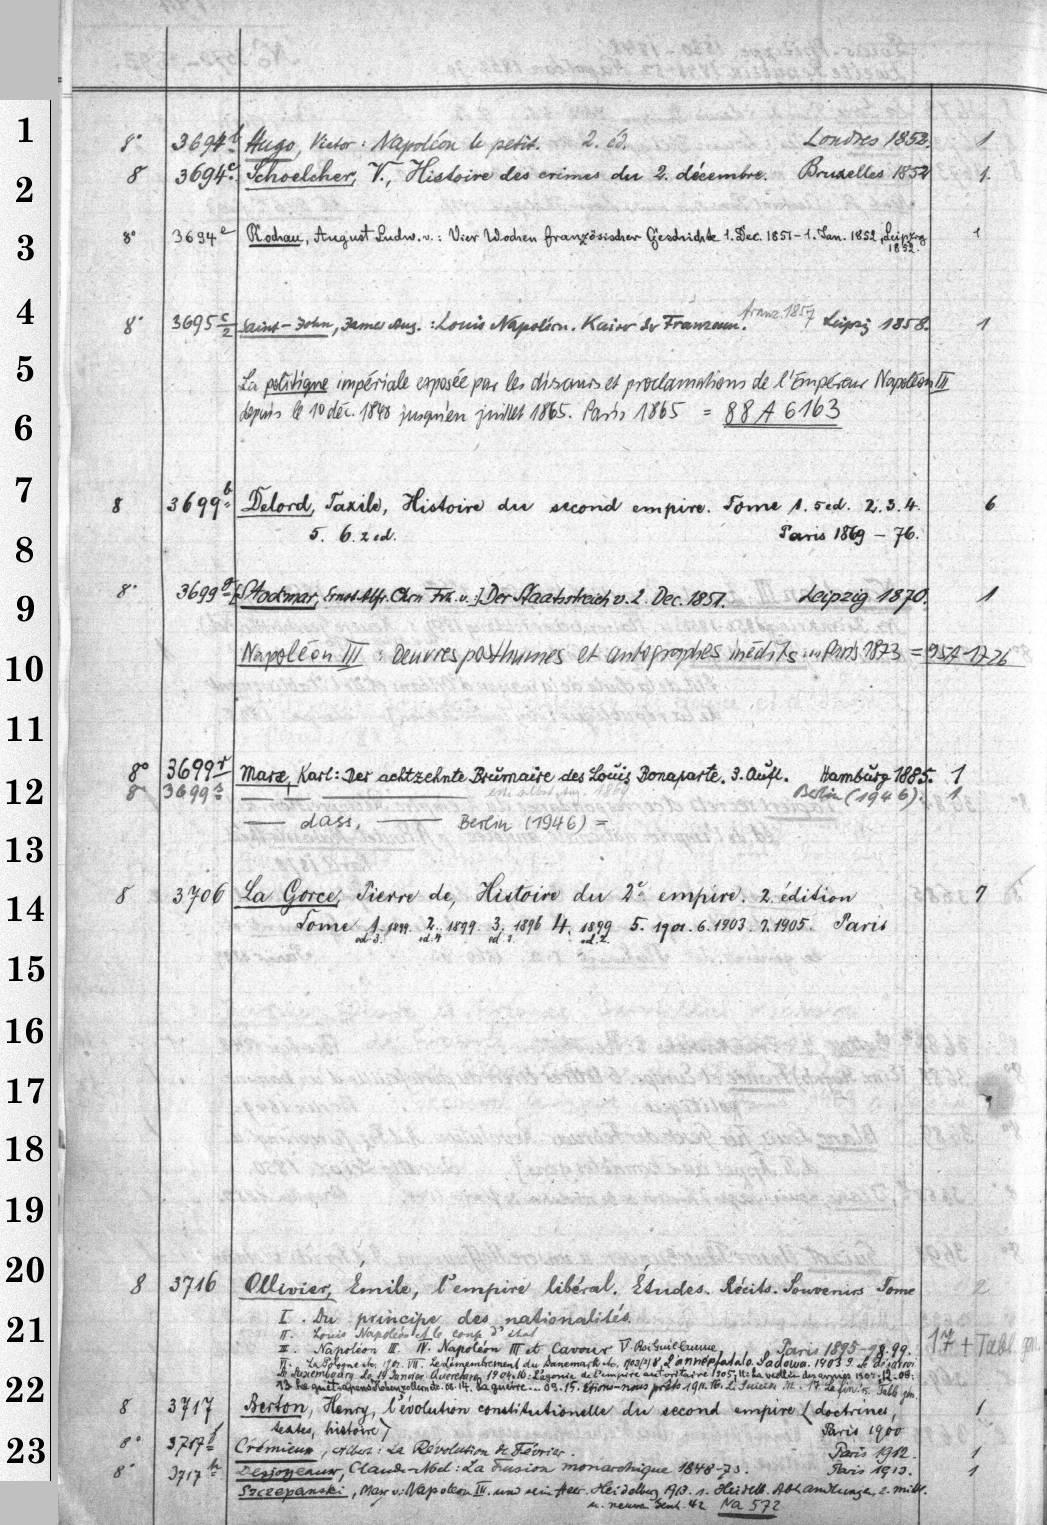 1
8° 3694b Hugo, Victor: Napoléon le petit. 2. éd. Londres 1852. 1
2
8 3694c. Schoelcher, V., Histoire des crimes du 2. décembre. Bruxelles 1852 1.
3
8° 3694e Rochau, August Ludw. v.: Vier Wochen französischer Geschichte 1. Dec. 1851 – 1. Jan. 1852, Leipzig 1852. 1
4
8° 3695 c/2 Saint-John, James Aug.: Louis Napoléon. Kaiser der Franzosen. franz. 1857 Leipzig 1858. 1
5
La politique impériale exposée par les discours et proclamations de l'Empereur Napoléon III
6
depuis le 10 déc. 1848 jusqu'en juillet 1865. Paris 1865 = 88 A 6163
7
8 3699b. Delord, Taxile, Histoire du second empire. Tome 1. 5 ed. 2. 3. 4. 6
8
5. 6. 2 ed. Paris 1869 – 76.
9
8° 3699g [Stockmar, Ernst Alfr. Chrn Frh. v.:] Der Staatsstreich v. 2. Dec. 1851. Leipzig 1870. 1
10
Napoléon III: Oeuvres posthumes et autographes inédits ... Paris 1873 = 95A 1726
11
8° 3699r Marx, Karl: Der achtzehnte Brumaire des Louis Bonaparte. 3. Aufl. Hamburg 1885. 1
12
8° 3699s Berlin (1946). 1
— dass, — Berlin (1946) =
13
14
8 3706 La Gorce, Pierre de, Histoire du 2e empire. 2. édition 7
Tome 1. 1899. 2. 1899. 3. 1896 4. 1899 5. 1901. 6. 1903. 7. 1905. Paris
ed. 3. ed. 4 ed. 1. ed. 2.
15
16
17
18
19
20
8 3716 Ollivier, Émile, l'empire libéral. Études. Récits. Souvenirs Tome 2
21
I. Du principe des nationalités.
II. Louis Napoléon et le coup d'état
III. Napoléon III. IV. Napoléon III et Cavour V. Paris 1895–1899. 17 + Tabl.
VI. La Pologne 1902. VII. Le démembrement du Danemark 1903 8. L'année fatale. Sadowa. 1903 9.
22
Luxembourg 10: L'agonie de l'empire autoritaire 1905.
13. 14. La guerre ... 09. 15. Étions-nous prêts 1911. 16. Le Suicide 17. La fin.
8 3717 Berton, Henry, l'évolution constitutionelle du second empire (doctrines, 1
textes, histoire) Paris 1900
23
8° 3717f Crémieux, Albert: La Révolution de Février. Paris 1912. 1
8° 3717h Desjoyeaux, Claude-Noel: La fusion monarchique 1848–73. Paris 1913. 1
Szczepanski, Max v: Napoleon III. und sein Heer. Heidelberg 1913. s. Heidelb. Abhandlungen z. mittl.
u. neuern Gesch. 42 Na 572